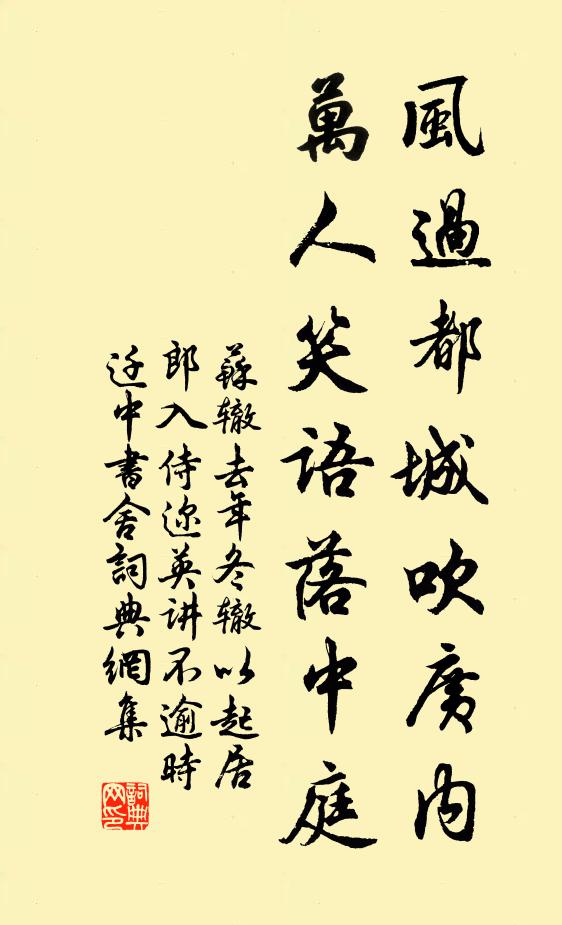 風過都城吹廣内
萬人笑語落中庭
蘇辙去年冬辙以起居
郎入侍迩英讲不逾時
迁中書舍詞典網集
詞典网印